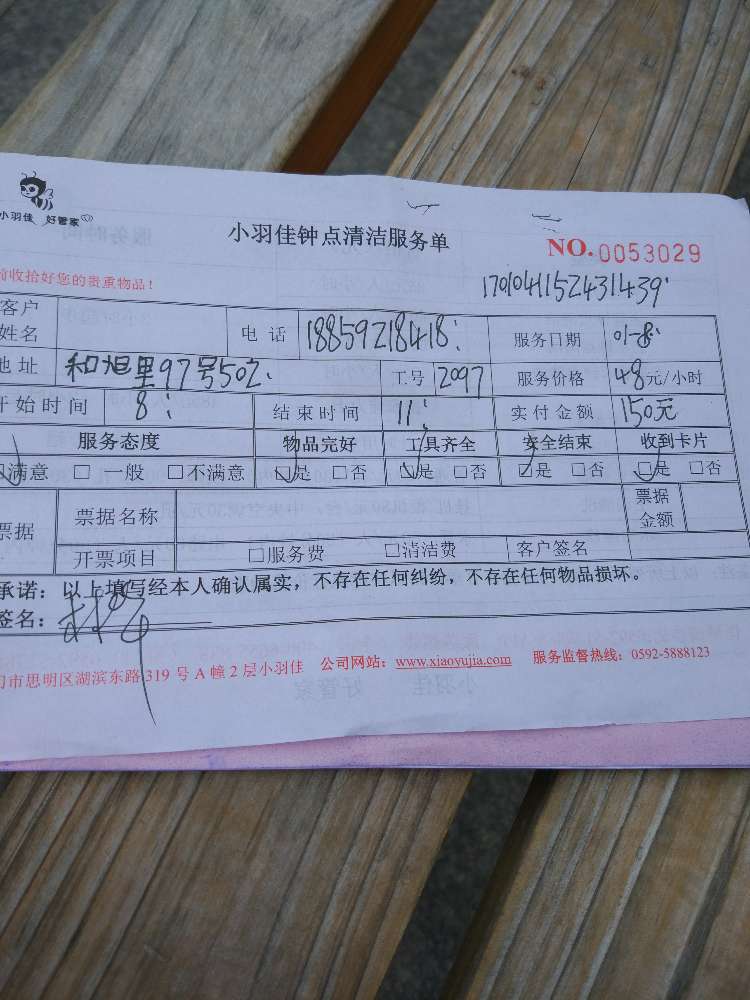 小羽佳 好管家
小羽佳钟点清洁服务单
NO.0053029
收拾好您的贵重物品！
1701041152431439
客户姓名 电话 18859218418 服务日期 01-8
地址 和旭里97号502 工号 2097 服务价格 48元/小时
开始时间 8: 结束时间 11: 实付金额 150元
服务态度 物品完好 工具齐全 安全结束 收到卡片
满意 □一般 □不满意 □是 □否 □是 □否 □是 □否 □是 □否
票据 票据名称 票据金额
开票项目 □服务费 □清洁费 客户签名
承诺：以上填写经本人确认属实，不存在任何纠纷，不存在任何物品损坏。
签名：
市思明区湖滨东路319号A幢2层小羽佳 公司网站：www.xiaoyujia.com 服务监督热线：0592-5888123